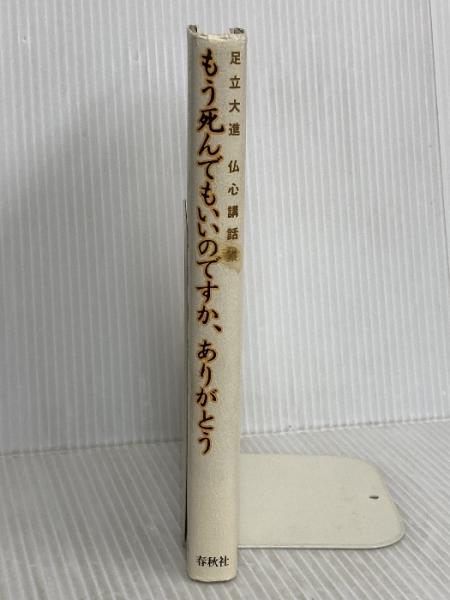 足立大進 仏心講話集
もう死んでもいいのですか、ありがとう
春秋社